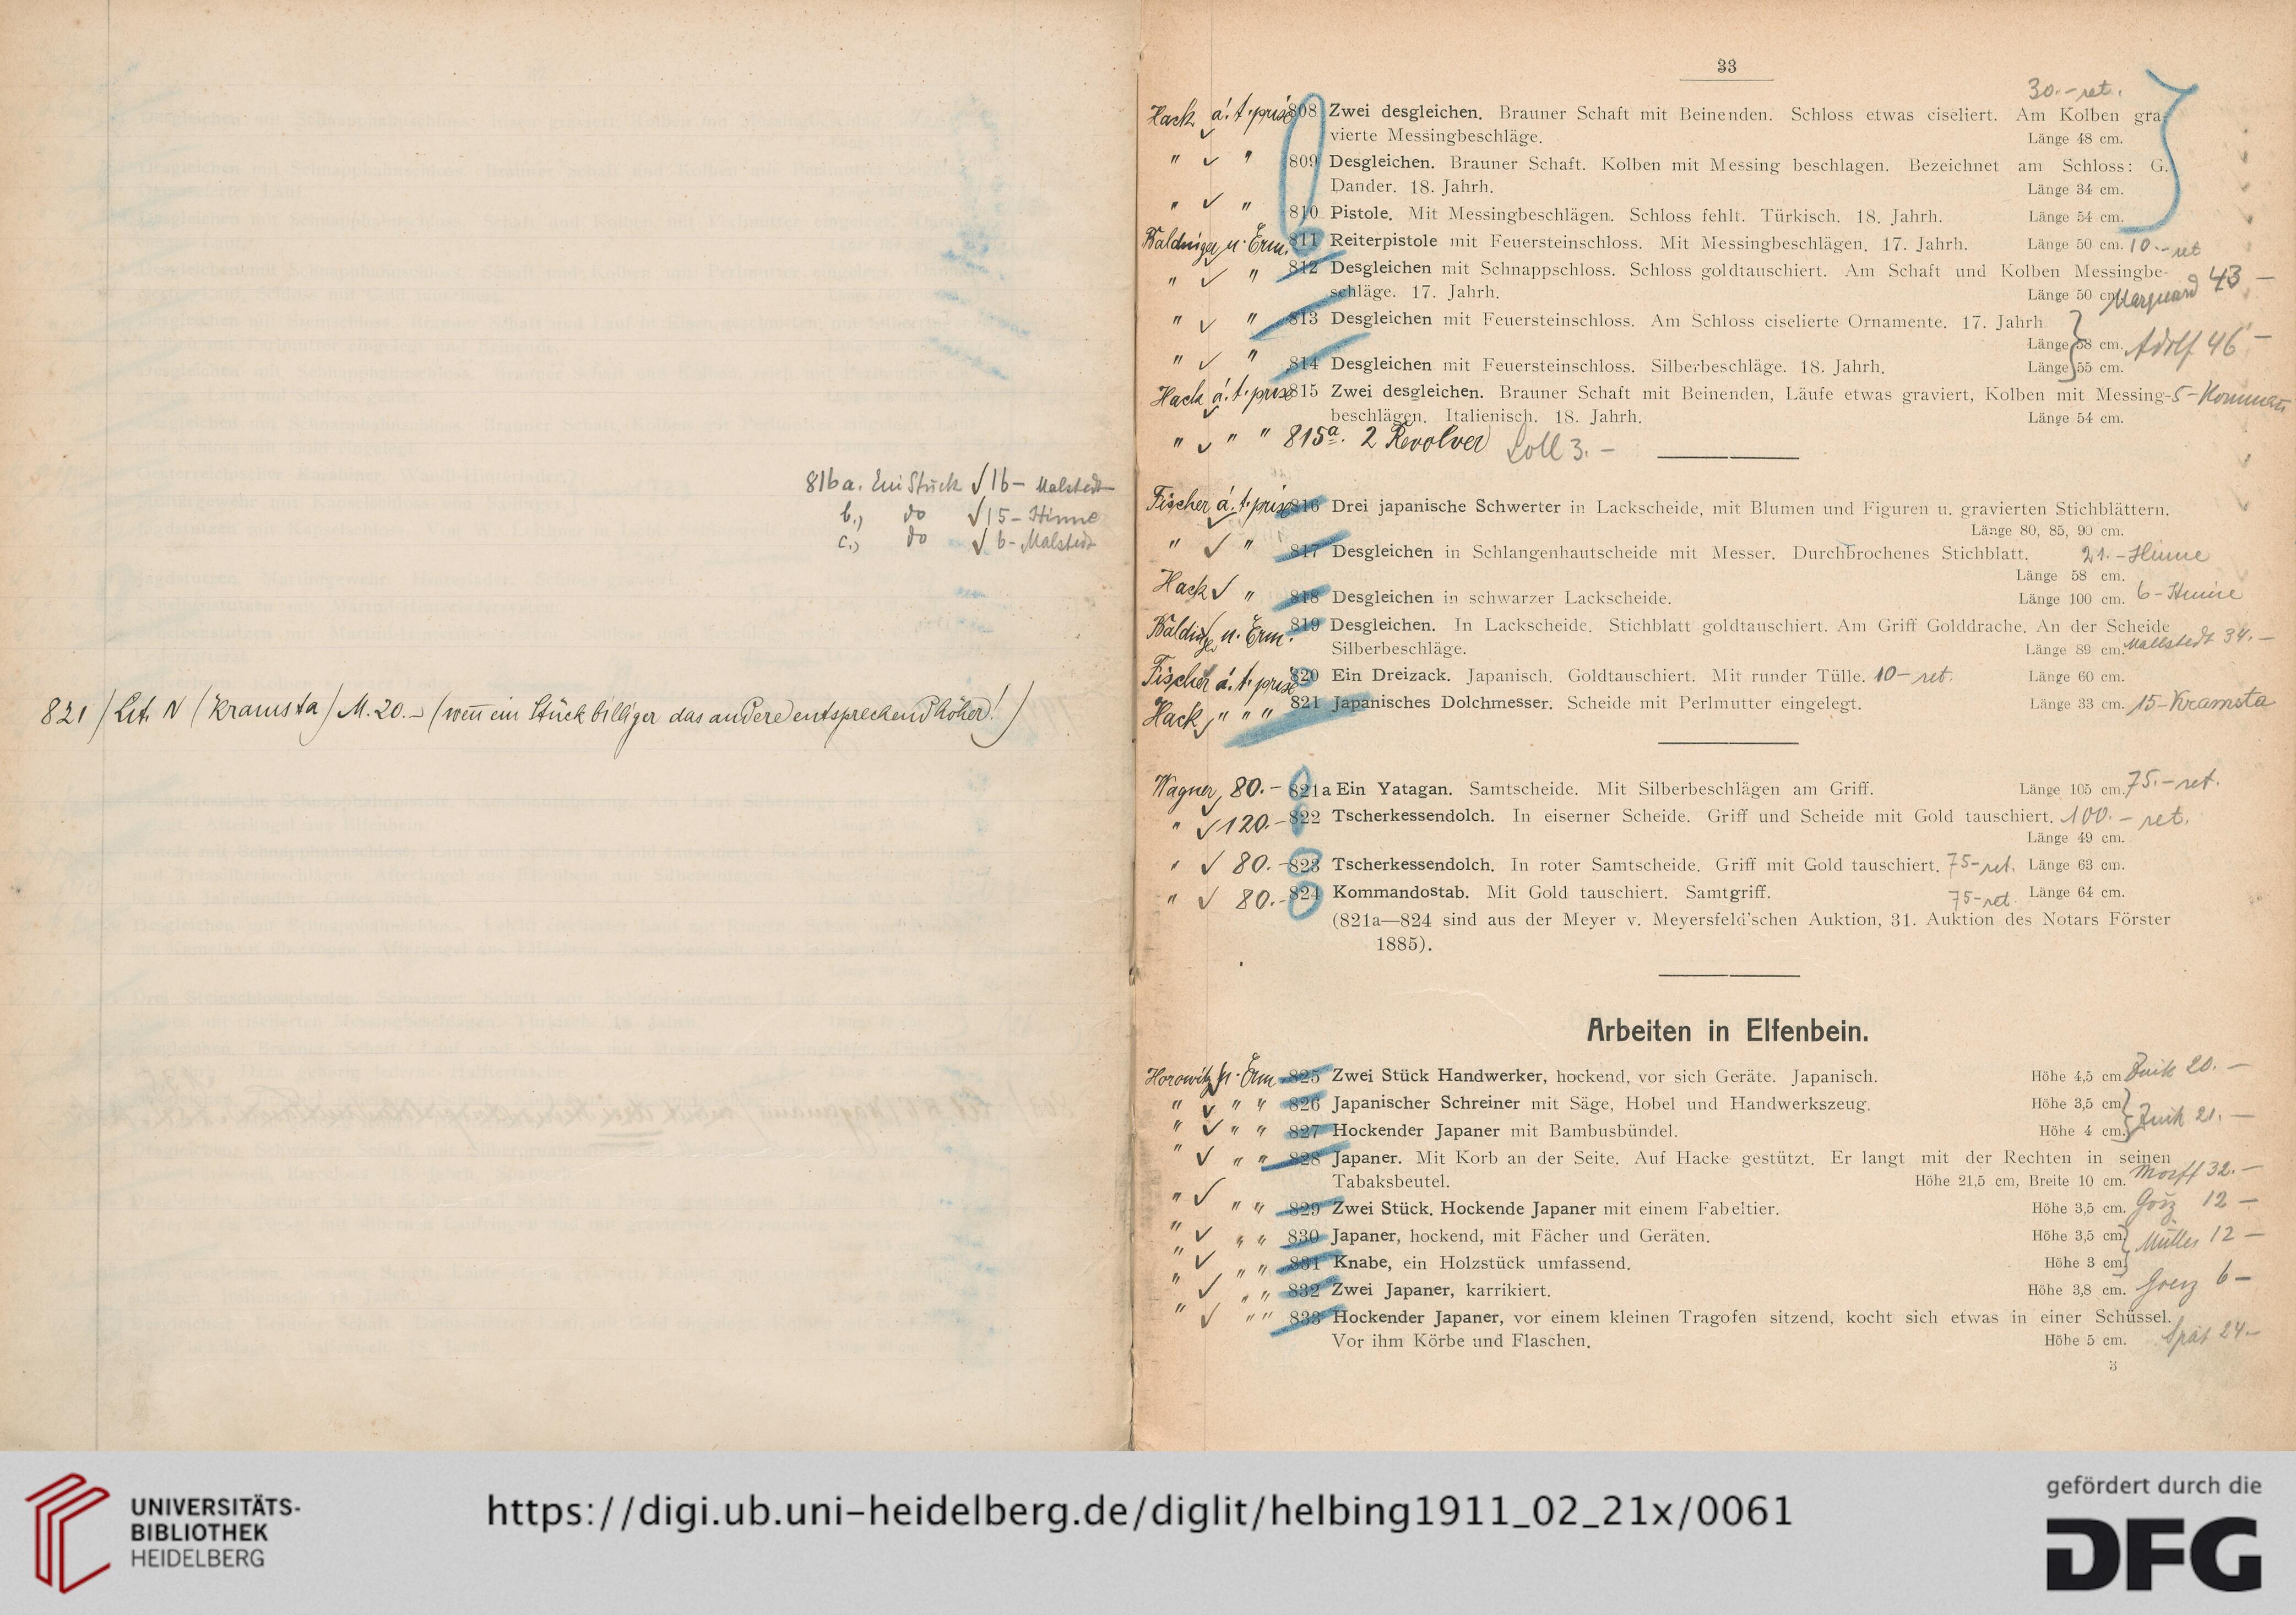 816a. Ein Stück √ 16 – Malstedt
b.) do √ 15 – Hinne
c.) do √ 6 – Malstedt
821 / Lit. N (Kramsta) M. 20.– (wenn ein Stück billiger das andere entsprechend höher!)
33
30.– ret.
Hack à t. prix 808 Zwei desgleichen. Brauner Schaft mit Beinenden. Schloss etwas ciseliert. Am Kolben gra-
vierte Messingbeschläge. Länge 48 cm.
" √ " 809 Desgleichen. Brauner Schaft. Kolben mit Messing beschlagen. Bezeichnet am Schloss: G.
Dander. 18. Jahrh. Länge 34 cm.
" √ " 810 Pistole. Mit Messingbeschlägen. Schloss fehlt. Türkisch. 18. Jahrh. Länge 54 cm.
u. Erm. 811 Reiterpistole mit Feuersteinschloss. Mit Messingbeschlägen. 17. Jahrh. Länge 50 cm. 10.– ret
" √ " 812 Desgleichen mit Schnappschloss. Schloss goldtauschiert. Am Schaft und Kolben Messingbe-
schläge. 17. Jahrh. Länge 50 cm. Marquard 43 –
" √ " 813 Desgleichen mit Feuersteinschloss. Am Schloss ciselierte Ornamente. 17. Jahrh
Länge 58 cm. Adolf 46 –
" √ " 814 Desgleichen mit Feuersteinschloss. Silberbeschläge. 18. Jahrh. Länge 55 cm.
Hack à t. prix 815 Zwei desgleichen. Brauner Schaft mit Beinenden, Läufe etwas graviert, Kolben mit Messing- 5 –
beschlägen. Italienisch. 18. Jahrh. Länge 54 cm.
" √ " " 815a. 2 Revolver Loll 3. –
Fischer à t. prix 816 Drei japanische Schwerter in Lackscheide, mit Blumen und Figuren u. gravierten Stichblättern.
Länge 80, 85, 90 cm.
" √ " 817 Desgleichen in Schlangenhautscheide mit Messer. Durchbrochenes Stichblatt. 21. – Hinne
Länge 58 cm.
Hack √ " 818 Desgleichen in schwarzer Lackscheide. Länge 100 cm. 6 – Hinne
u. Erm. 819 Desgleichen. In Lackscheide. Stichblatt goldtauschiert. Am Griff Golddrache. An der Scheide
Silberbeschläge. Länge 89 cm. Mallstedt 34. –
Fischer à t. prix 820 Ein Dreizack. Japanisch. Goldtauschiert. Mit runder Tülle. 10 – ret. Länge 60 cm.
Hack √ " " " 821 Japanisches Dolchmesser. Scheide mit Perlmutter eingelegt. Länge 33 cm. 15 – Kramsta
Wagner, 80.– 821a Ein Yatagan. Samtscheide. Mit Silberbeschlägen am Griff. Länge 105 cm. 75. – ret.
" √ 120.– 822 Tscherkessendolch. In eiserner Scheide. Griff und Scheide mit Gold tauschiert. 100. – ret.
Länge 49 cm.
" √ 80.– 823 Tscherkessendolch. In roter Samtscheide. Griff mit Gold tauschiert. 75 – ret. Länge 63 cm.
" √ 80.– 824 Kommandostab. Mit Gold tauschiert. Samtgriff. 75 – ret Länge 64 cm.
(821a—824 sind aus der Meyer v. Meyersfeld'schen Auktion, 31. Auktion des Notars Förster
1885).
Arbeiten in Elfenbein.
Horowitz u. Erm 825 Zwei Stück Handwerker, hockend, vor sich Geräte. Japanisch. Höhe 4,5 cm 20. –
" √ " " 826 Japanischer Schreiner mit Säge, Hobel und Handwerkszeug. Höhe 3,5 cm
" √ " " 827 Hockender Japaner mit Bambusbündel. Höhe 4 cm. 21. –
" √ " " 828 Japaner. Mit Korb an der Seite. Auf Hacke gestützt. Er langt mit der Rechten in seinen
Tabaksbeutel. Höhe 21,5 cm, Breite 10 cm. 32. –
" √ " " 829 Zwei Stück. Hockende Japaner mit einem Fabeltier. Höhe 3,5 cm. 12 –
" √ " " 830 Japaner, hockend, mit Fächer und Geräten. Höhe 3,5 cm Müller 12 –
" √ " " 831 Knabe, ein Holzstück umfassend. Höhe 3 cm
" √ " " 832 Zwei Japaner, karrikiert. Höhe 3,8 cm. Goerz 6 –
" √ " " 833 Hockender Japaner, vor einem kleinen Tragofen sitzend, kocht sich etwas in einer Schüssel.
Vor ihm Körbe und Flaschen. Höhe 5 cm. Spät 24 –
3
UNIVERSITÄTS-
BIBLIOTHEK
HEIDELBERG
https://digi.ub.uni-heidelberg.de/diglit/helbing1911_02_21x/0061
gefördert durch die
DFG